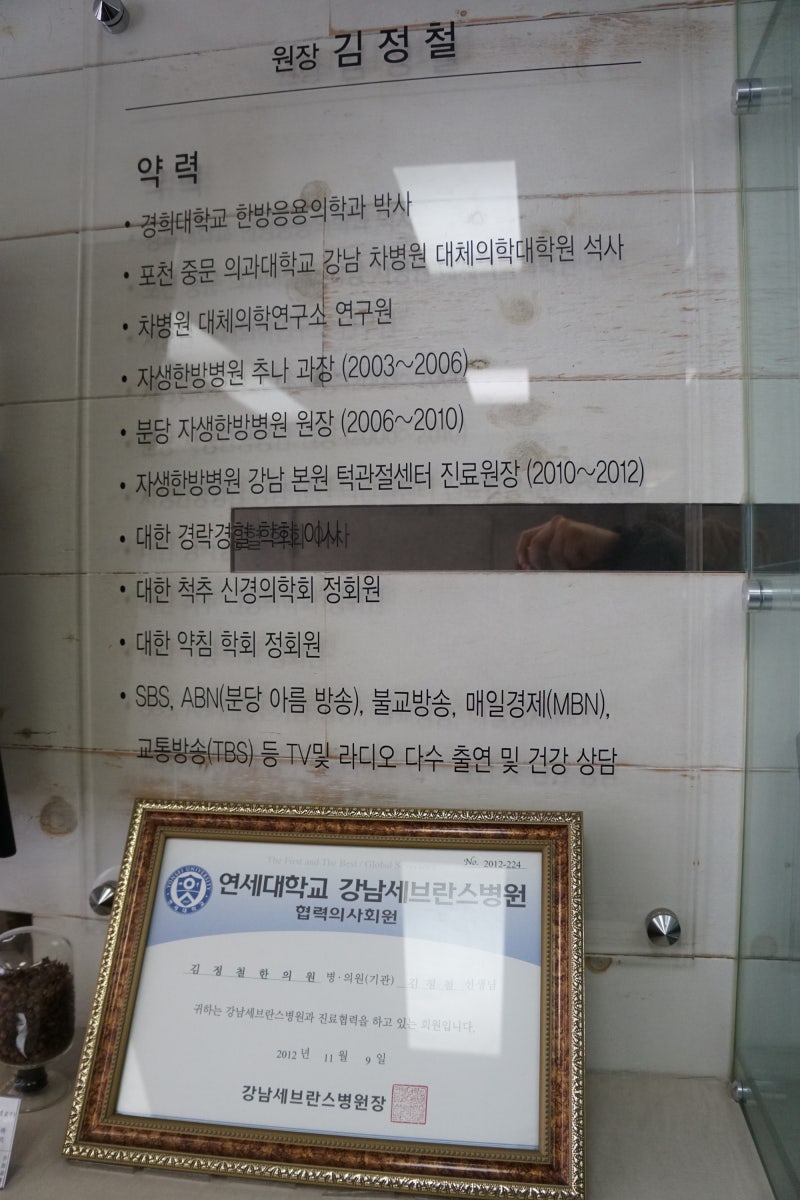 원장 김정철
약력
• 경희대학교 한방응용의학과 박사
• 포천 중문 의과대학교 강남 차병원 대체의학대학원 석사
• 차병원 대체의학연구소 연구원
• 자생한방병원 추나 과장 (2003～2006)
• 분당 자생한방병원 원장 (2006～2010)
• 자생한방병원 강남 본원 턱관절센터 진료원장 (2010～2012)
• 대한 경락경혈 학회 이사
• 대한 척추 신경의학회 정회원
• 대한 약침 학회 정회원
• SBS, ABN(분당 아름 방송), 불교방송, 매일경제(MBN),
교통방송(TBS) 등 TV및 라디오 다수 출연 및 건강 상담
The First and The Best / Global
No. 2012-224
연세대학교 강남세브란스병원
협력의사회원
김정철한의원 병·의원(기관) 김정철 선생님
귀하는 강남세브란스병원과 진료협력을 하고 있는 회원입니다.
2012 년 11 월 9 일
강남세브란스병원장